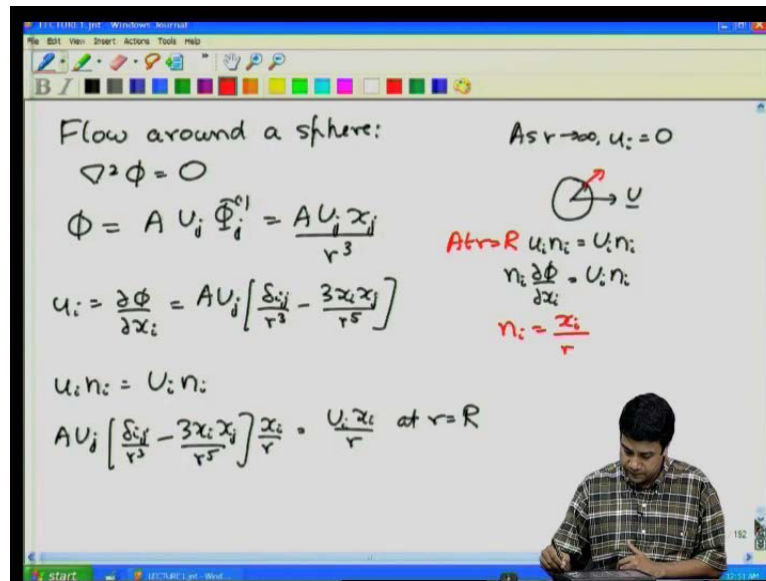 LECTURE1.jnt - Windows Journal
File Edit View Insert Actions Tools Help
B I
Flow around a sphere:
∇²ϕ = 0
ϕ = A U_j Φ_j^(1) = A U_j x_j / r³
u_i = ∂ϕ/∂x_i = A U_j [δ_ij/r³ - 3x_i x_j/r⁵]
u_i n_i = U_i n_i
A U_j [δ_ij/r³ - 3x_i x_j/r⁵] x_i/r = U_i x_i/r at r=R
As r→∞, u_i = 0
U
At r=R u_i n_i = U_i n_i
n_i ∂ϕ/∂x_i = U_i n_i
n_i = x_i/r
/ 192
start
LECTURE1.jnt - Wind...
12:51 AM